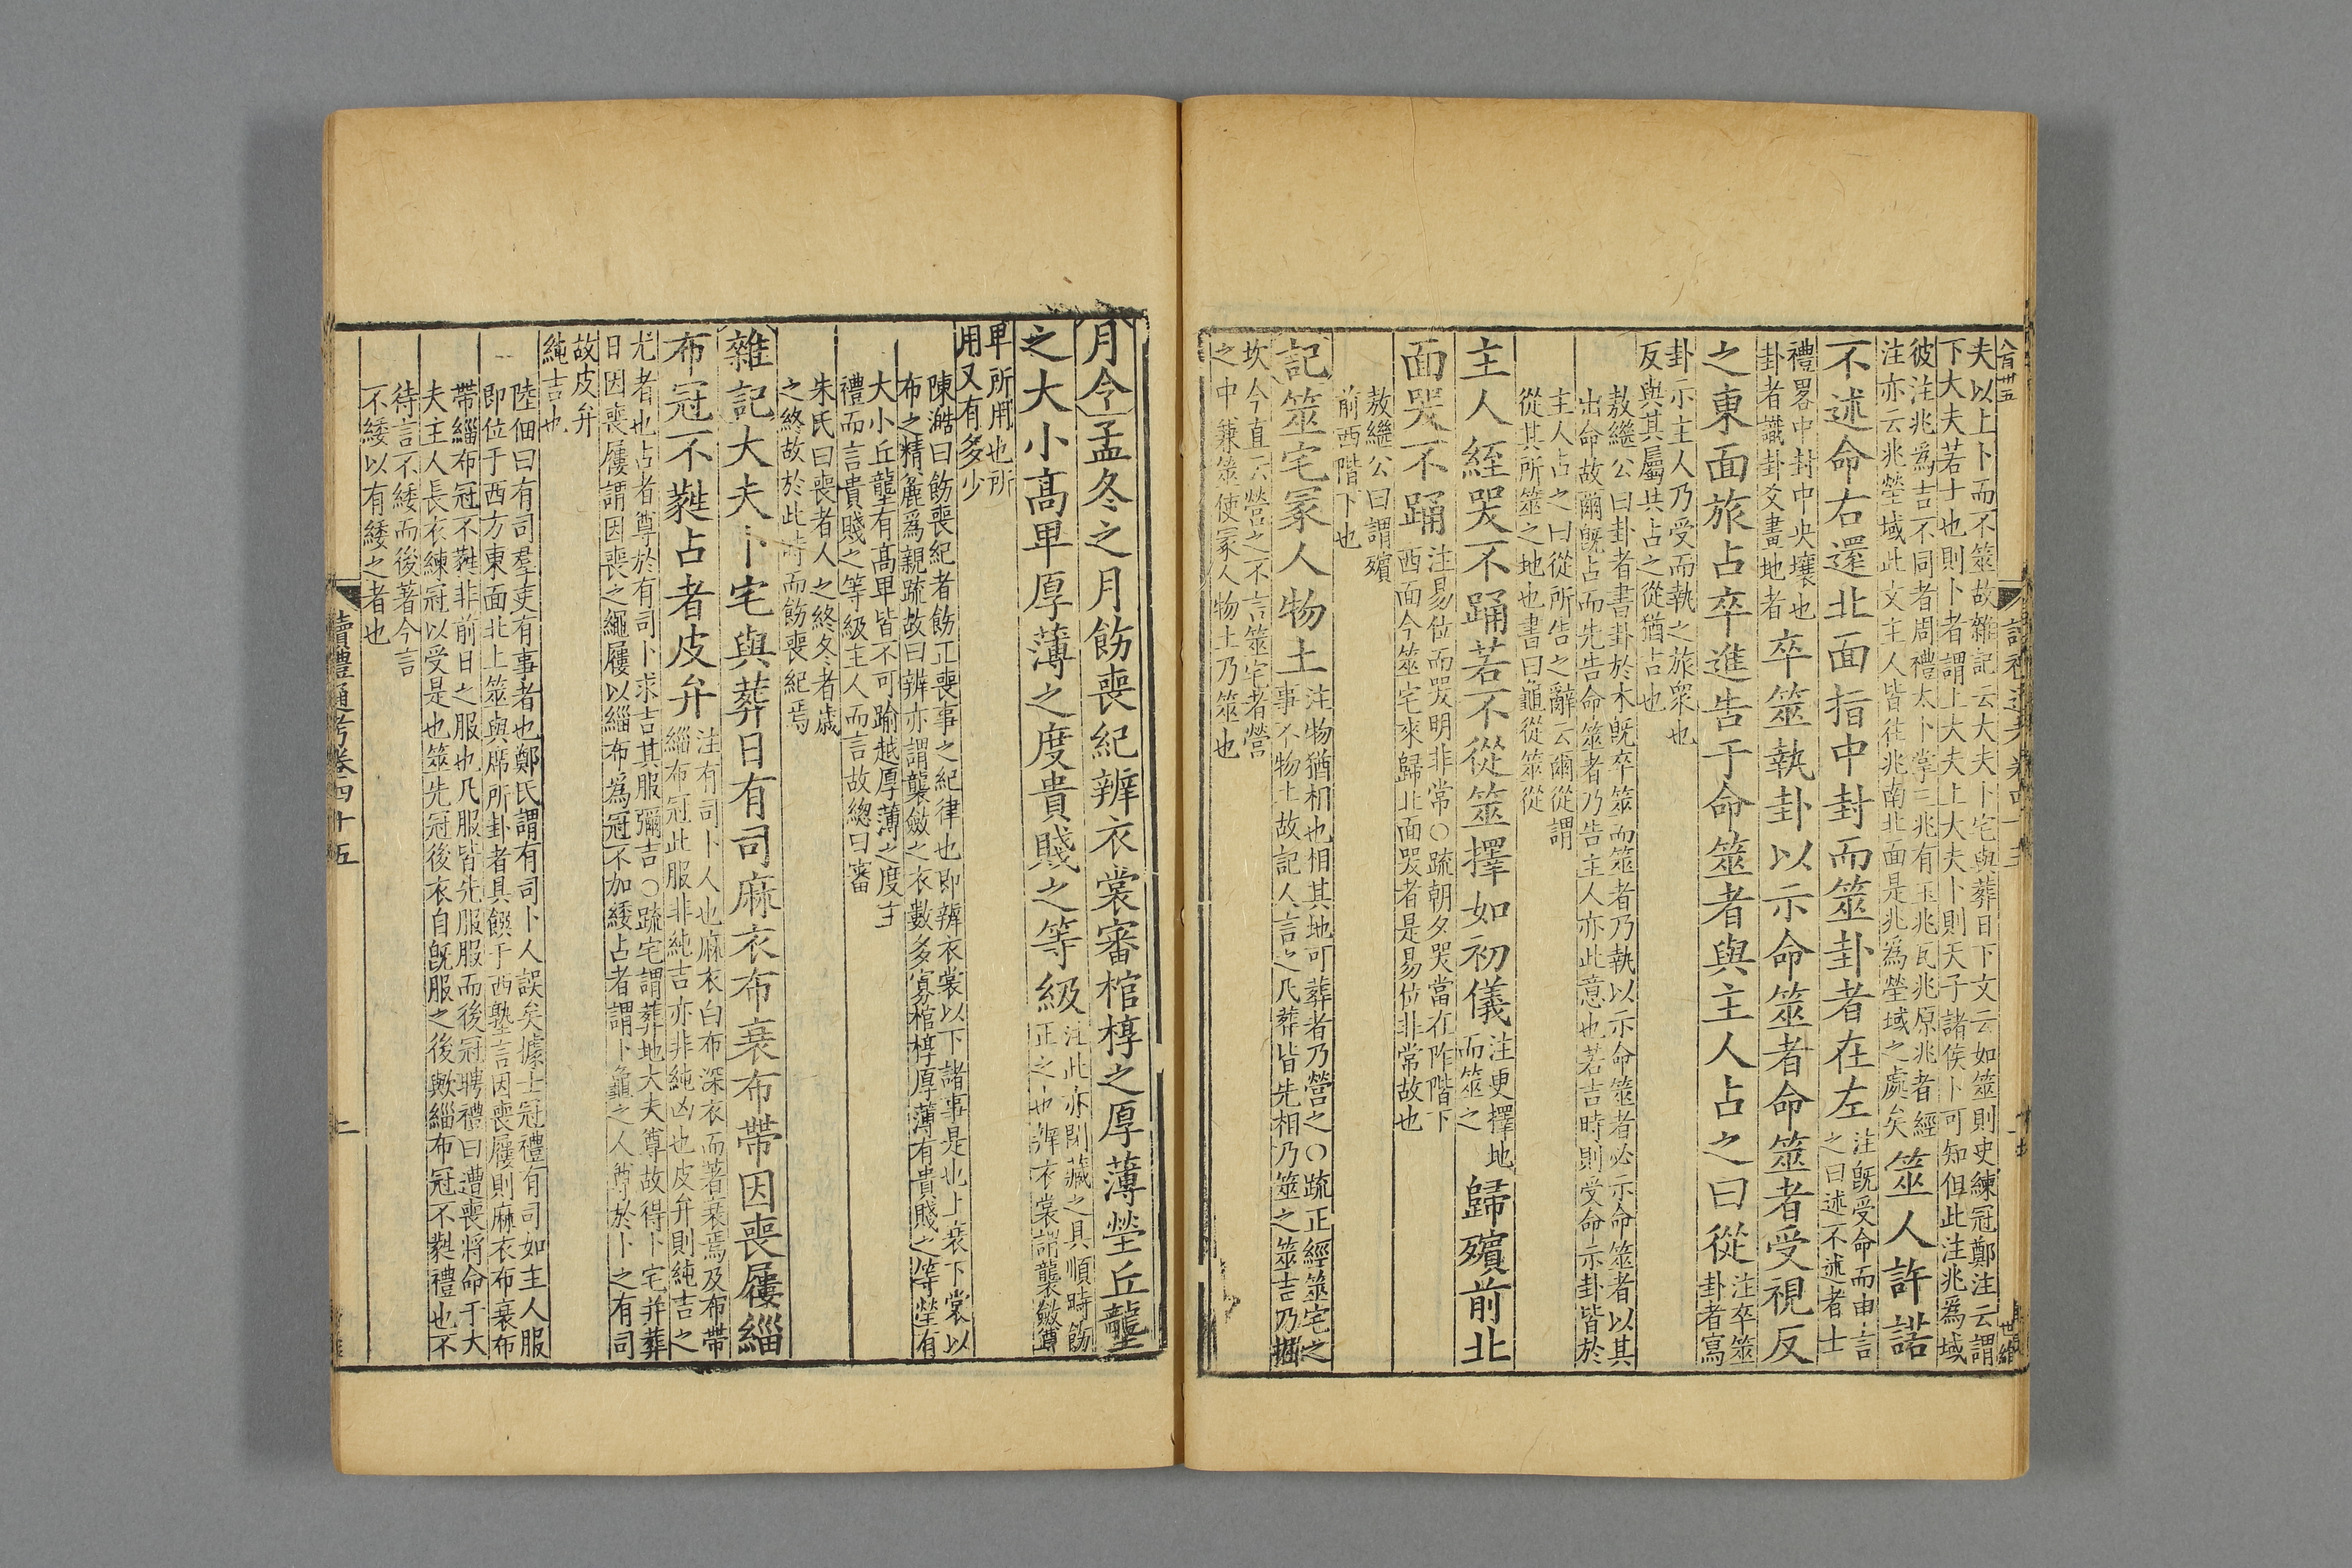 夫以上卜而不筮故雜記云大夫卜宅與葬日下文云如筮則史練冠鄭注云謂
下大夫若士也則卜者謂上大夫上大夫卜則天子諸侯卜可知但此注兆爲域
彼注兆爲吉不同者周禮太卜掌三兆有玉兆瓦兆原兆者經
注亦云兆塋域此文主人皆往兆南北面是兆爲塋域之處矣
筮人許諾
不述命右還北面指中封而筮卦者在左
注既受命而申言
之曰述不述者士
禮畧中封中央壤也
卦者識卦爻畫地者
卒筮執卦以示命筮者命筮者受視反
之東面旅占卒進告于命筮者與主人占之曰從
注卒筮
卦者寫
卦示主人乃受而執之旅衆也
反與其屬共占之從猶占也
敖繼公曰卦者書卦於木既卒筮而筮者乃執以示命筮者必示命筮者以其
出命故爾旣占而先告命筮者乃告主人亦此意也若吉時則受命示卦皆於
主人占之曰從所告之辭云爾從謂
從其所筮之地也書曰龜從筮從
主人絰哭不踊若不從筮擇如初儀
注更擇地
而筮之
歸殯前北
面哭不踊
注易位而哭明非常○疏朝夕哭當在阼階下
西面今筮宅來歸北面哭者是易位非常故也
敖繼公曰謂殯
前西階下也
記筮宅冢人物土
注物猶相也相其地可葬者乃營之○疏正經筮宅之
事不物土故記人言之凡葬皆先相乃筮之筮吉乃掘
坎今直云營之不言筮宅者營
之中兼筮使冢人物土乃筮也
月令孟冬之月飭喪紀辨衣裳審棺椁之厚薄塋丘壟
之大小高卑厚薄之度貴賤之等級
注此亦閉藏之具順時飭
正之也辨衣裳謂襲斂尊
卑所用也所
用又有多少
陳澔曰飭喪紀者飭正喪事之紀律也即辨衣裳以下諸事是也上衰下裳以
布之精麄爲親疏故曰辨亦謂襲斂之衣數多寡棺椁厚薄有貴賤之等塋有
大小丘壟有高卑皆不可踰越厚薄之度主
禮而言貴賤之等級主人而言故總曰審
朱氏曰喪者人之終冬者歲
之終故於此時而飭喪紀焉
雜記大夫卜宅與葬日有司麻衣布衰布帶因喪屨緇
布冠不蕤占者皮弁
注有司卜人也麻衣白布深衣而著衰焉及布帶
緇布冠此服非純吉亦非純凶也皮弁則純吉之
尤者也占者尊於有司卜求吉其服彌吉○疏宅謂葬地大夫尊故得卜宅并葬
日因喪屨謂因喪之繩屨以緇布爲冠不加緌占者謂卜龜之人尊於卜之有司
故皮弁
純吉也
陸佃曰有司羣吏有事者也鄭氏謂有司卜人誤矣據士冠禮有司如主人服
即位于西方東面北上筮與席所卦者具饌于西塾言因喪屨則麻衣布衰布
帶緇布冠不蕤非前日之服也凡服皆先服服而後冠聘禮曰遭喪將命于大
夫主人長衣練冠以受是也筮先冠後衣自旣服之後歟緇布冠不蕤禮也不
待言不緌而後著今言
不緌以有緌之者也
讀禮通考卷四十五